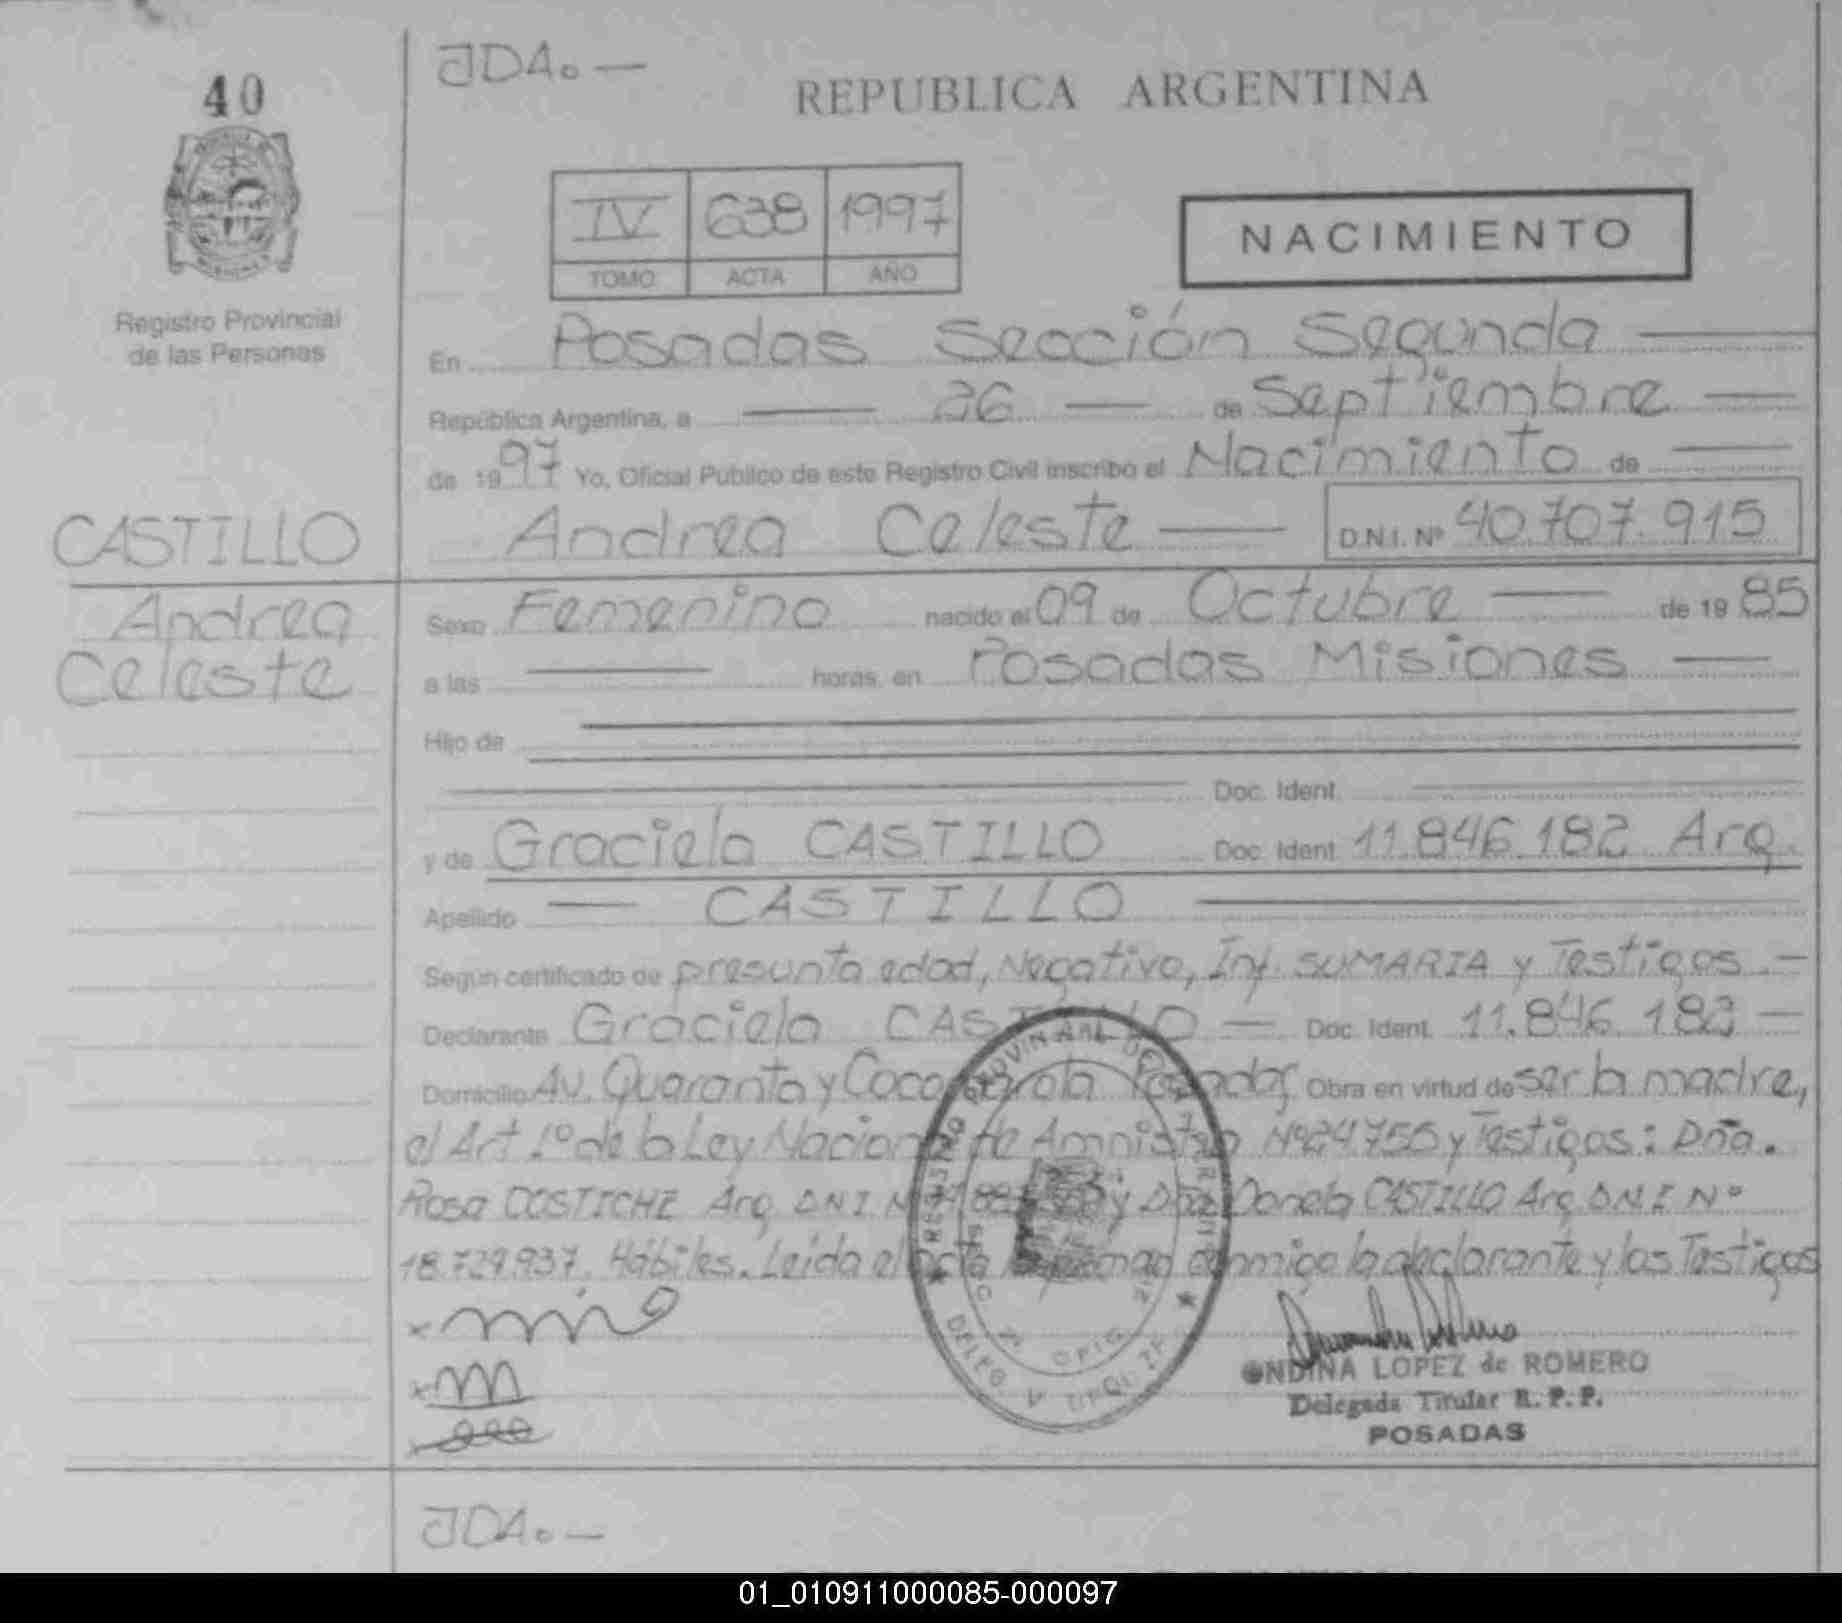 JDA.—
40
REPUBLICA ARGENTINA
IV 638 1997
TOMO ACTA AÑO
NACIMIENTO
Registro Provincial
de las Personas
En Posadas Sección Segunda
República Argentina, a 26 de Septiembre
de 1997 Yo, Oficial Público de este Registro Civil inscribo el Nacimiento de
CASTILLO
Andrea Celeste D.N.I. Nº 40.707.915
Andrea
Celeste
Sexo Femenino nacido el 09 de Octubre de 1985
a las horas, en Posadas Misiones
Hijo de
Doc. Ident.
y de Graciela CASTILLO Doc. Ident. 11.846.182 Arg.
Apellido CASTILLO
Según certificado de presunta edad, Negativo, Inf. SUMARIA y Testigos.-
Declarante Graciela CASTILLO Doc. Ident. 11.846.182
Domicilio Av. Quaranta y Cocomarola Posadas Obra en virtud de ser la madre,
el Art 1º de la Ley Nacional de Amnistia Nº 24.755 y Testigos: Dña.
Rosa COSTICHE Arg. DNI Nº y Dña Daniela CASTILLO Arg. D.N.I Nº
18.729.937. Hábiles. Leida el acta la firman conmigo la declarante y los Testigos
ONDINA LOPEZ de ROMERO
Delegada Titular R.P.P.
POSADAS
JDA.—
01_010911000085-000097